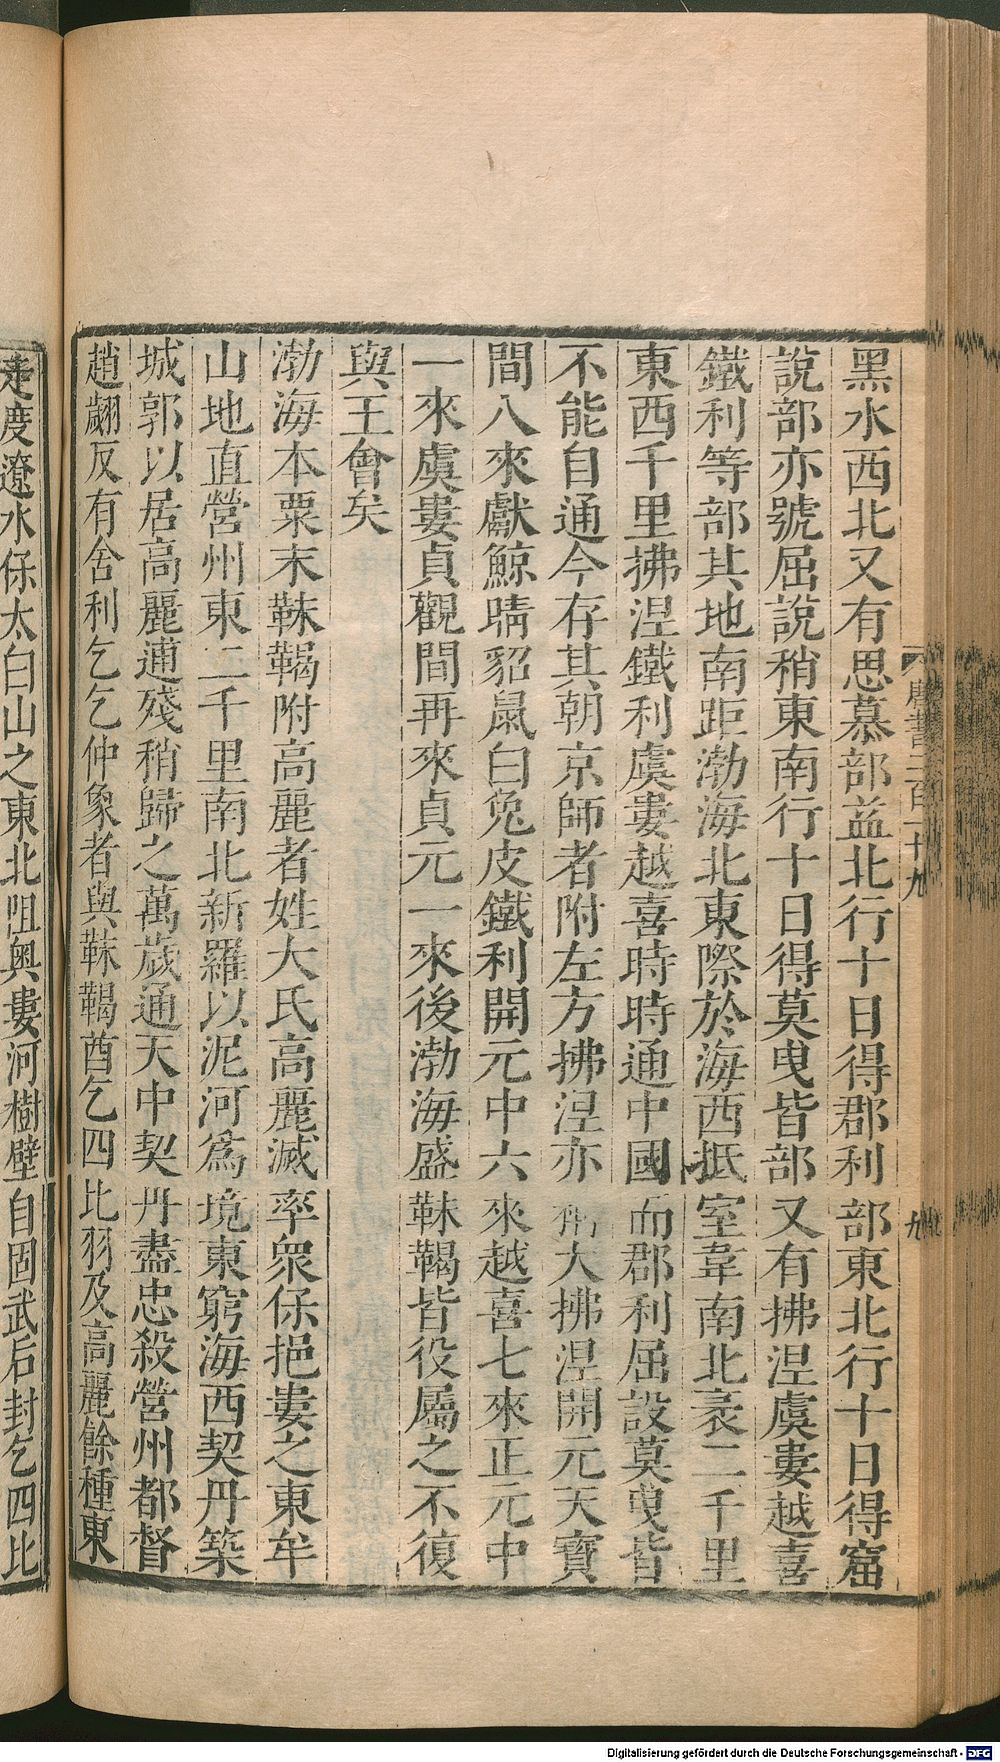 唐書二百一十九
九
黑水西北又有思慕部益北行十日得郡利部東北行十日得窟
說部亦號屈說稍東南行十日得莫曳皆部又有拂涅虞婁越喜
鐵利等部其地南距渤海北東際於海西抵室韋南北袤二千里
東西千里拂涅鐵利虞婁越喜時時通中國而郡利屈設莫曳皆
不能自通今存其朝京師者附左方拂涅亦稱大拂涅開元天寶
間八來獻鯨睛貂鼠白兔皮鐵利開元中六來越喜七來正元中
一來虞婁貞觀間再來貞元一來後渤海盛靺鞨皆役屬之不復
與王會矣
渤海本粟末靺鞨附高麗者姓大氏高麗滅率衆保挹婁之東牟
山地直營州東二千里南北新羅以泥河爲境東窮海西契丹築
城郭以居高麗逋殘稍歸之萬歲通天中契丹盡忠殺營州都督
趙翽反有舍利乞乞仲象者與靺鞨酋乞四比羽及高麗餘種東
走度遼水保太白山之東北阻奧婁河樹壁自固武后封乞四比
Digitalisierung gefördert durch die Deutsche Forschungsgemeinschaft - DFG